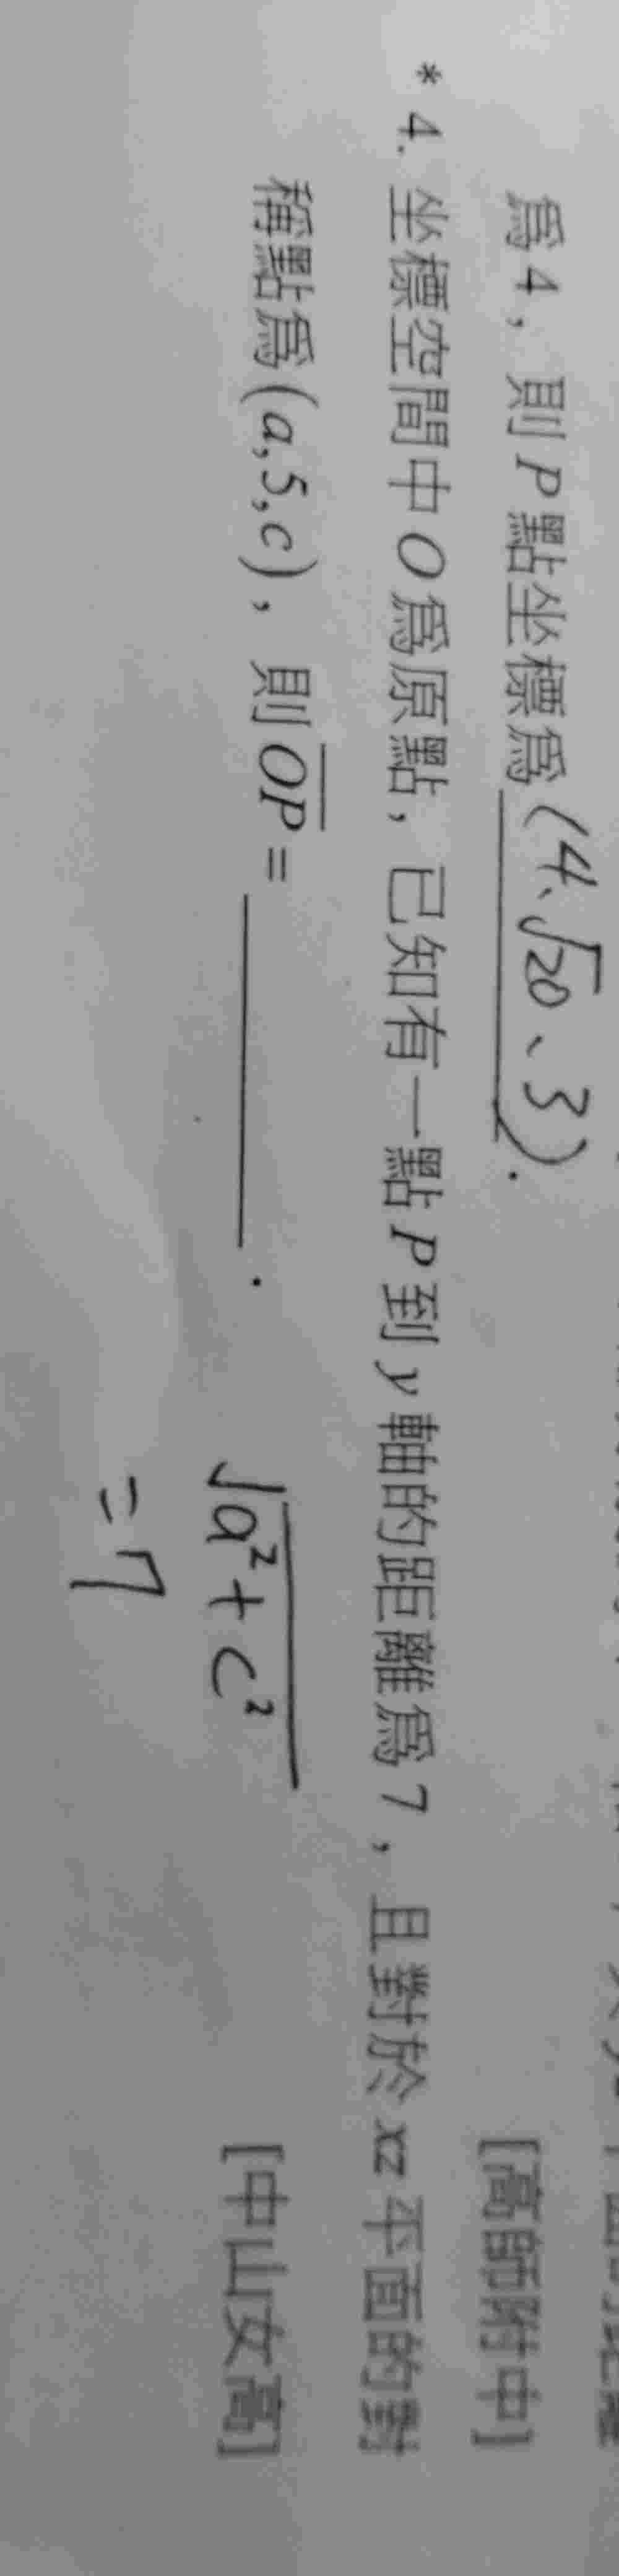 為4，則P點坐標為(4、√20、3).
[高師附中]
* 4. 坐標空間中O為原點，已知有一點P到y軸的距離為7，且對於xz平面的對
稱點為(a,5,c)，則OP=______.
[中山女高]
√a²+c²
=7